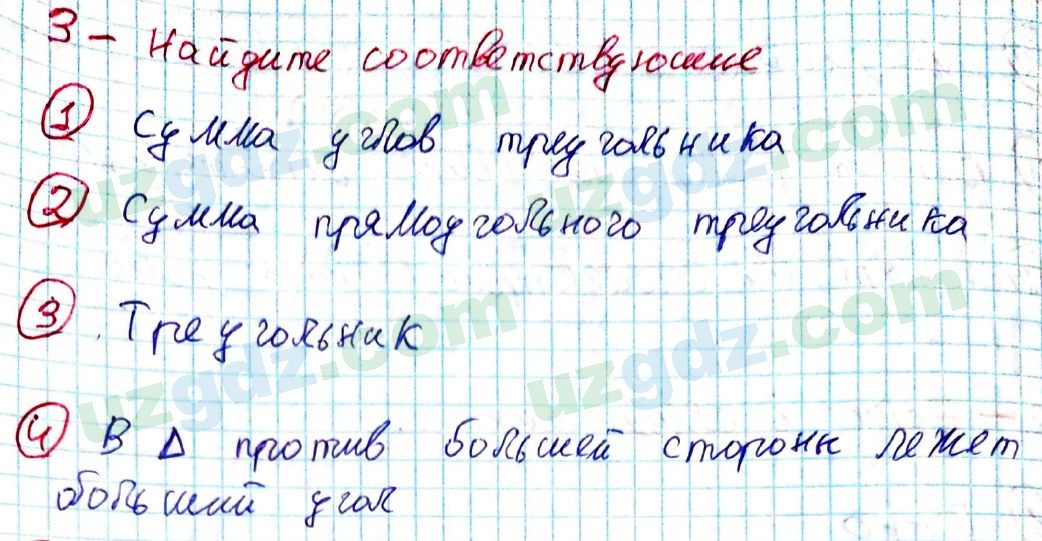 3 - Найдите соответствующие
1 Сумма углов треугольника
2 Сумма прямоугольного треугольника
3. Треугольник
4 В Δ против большей стороны лежет
больший угол
uzgdz.com
uzgdz.com
uzgdz.com
uzgdz.com